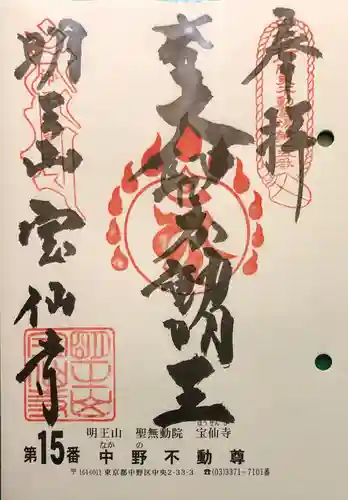 奉拝
不動明王
明王山
宝仙寺
明王山 聖無動院 宝仙寺
ほうせんじ
なかの
第15番 中野不動尊
〒164-0011 東京都中野区中央2-33-3 ☎(03)3371-7101番